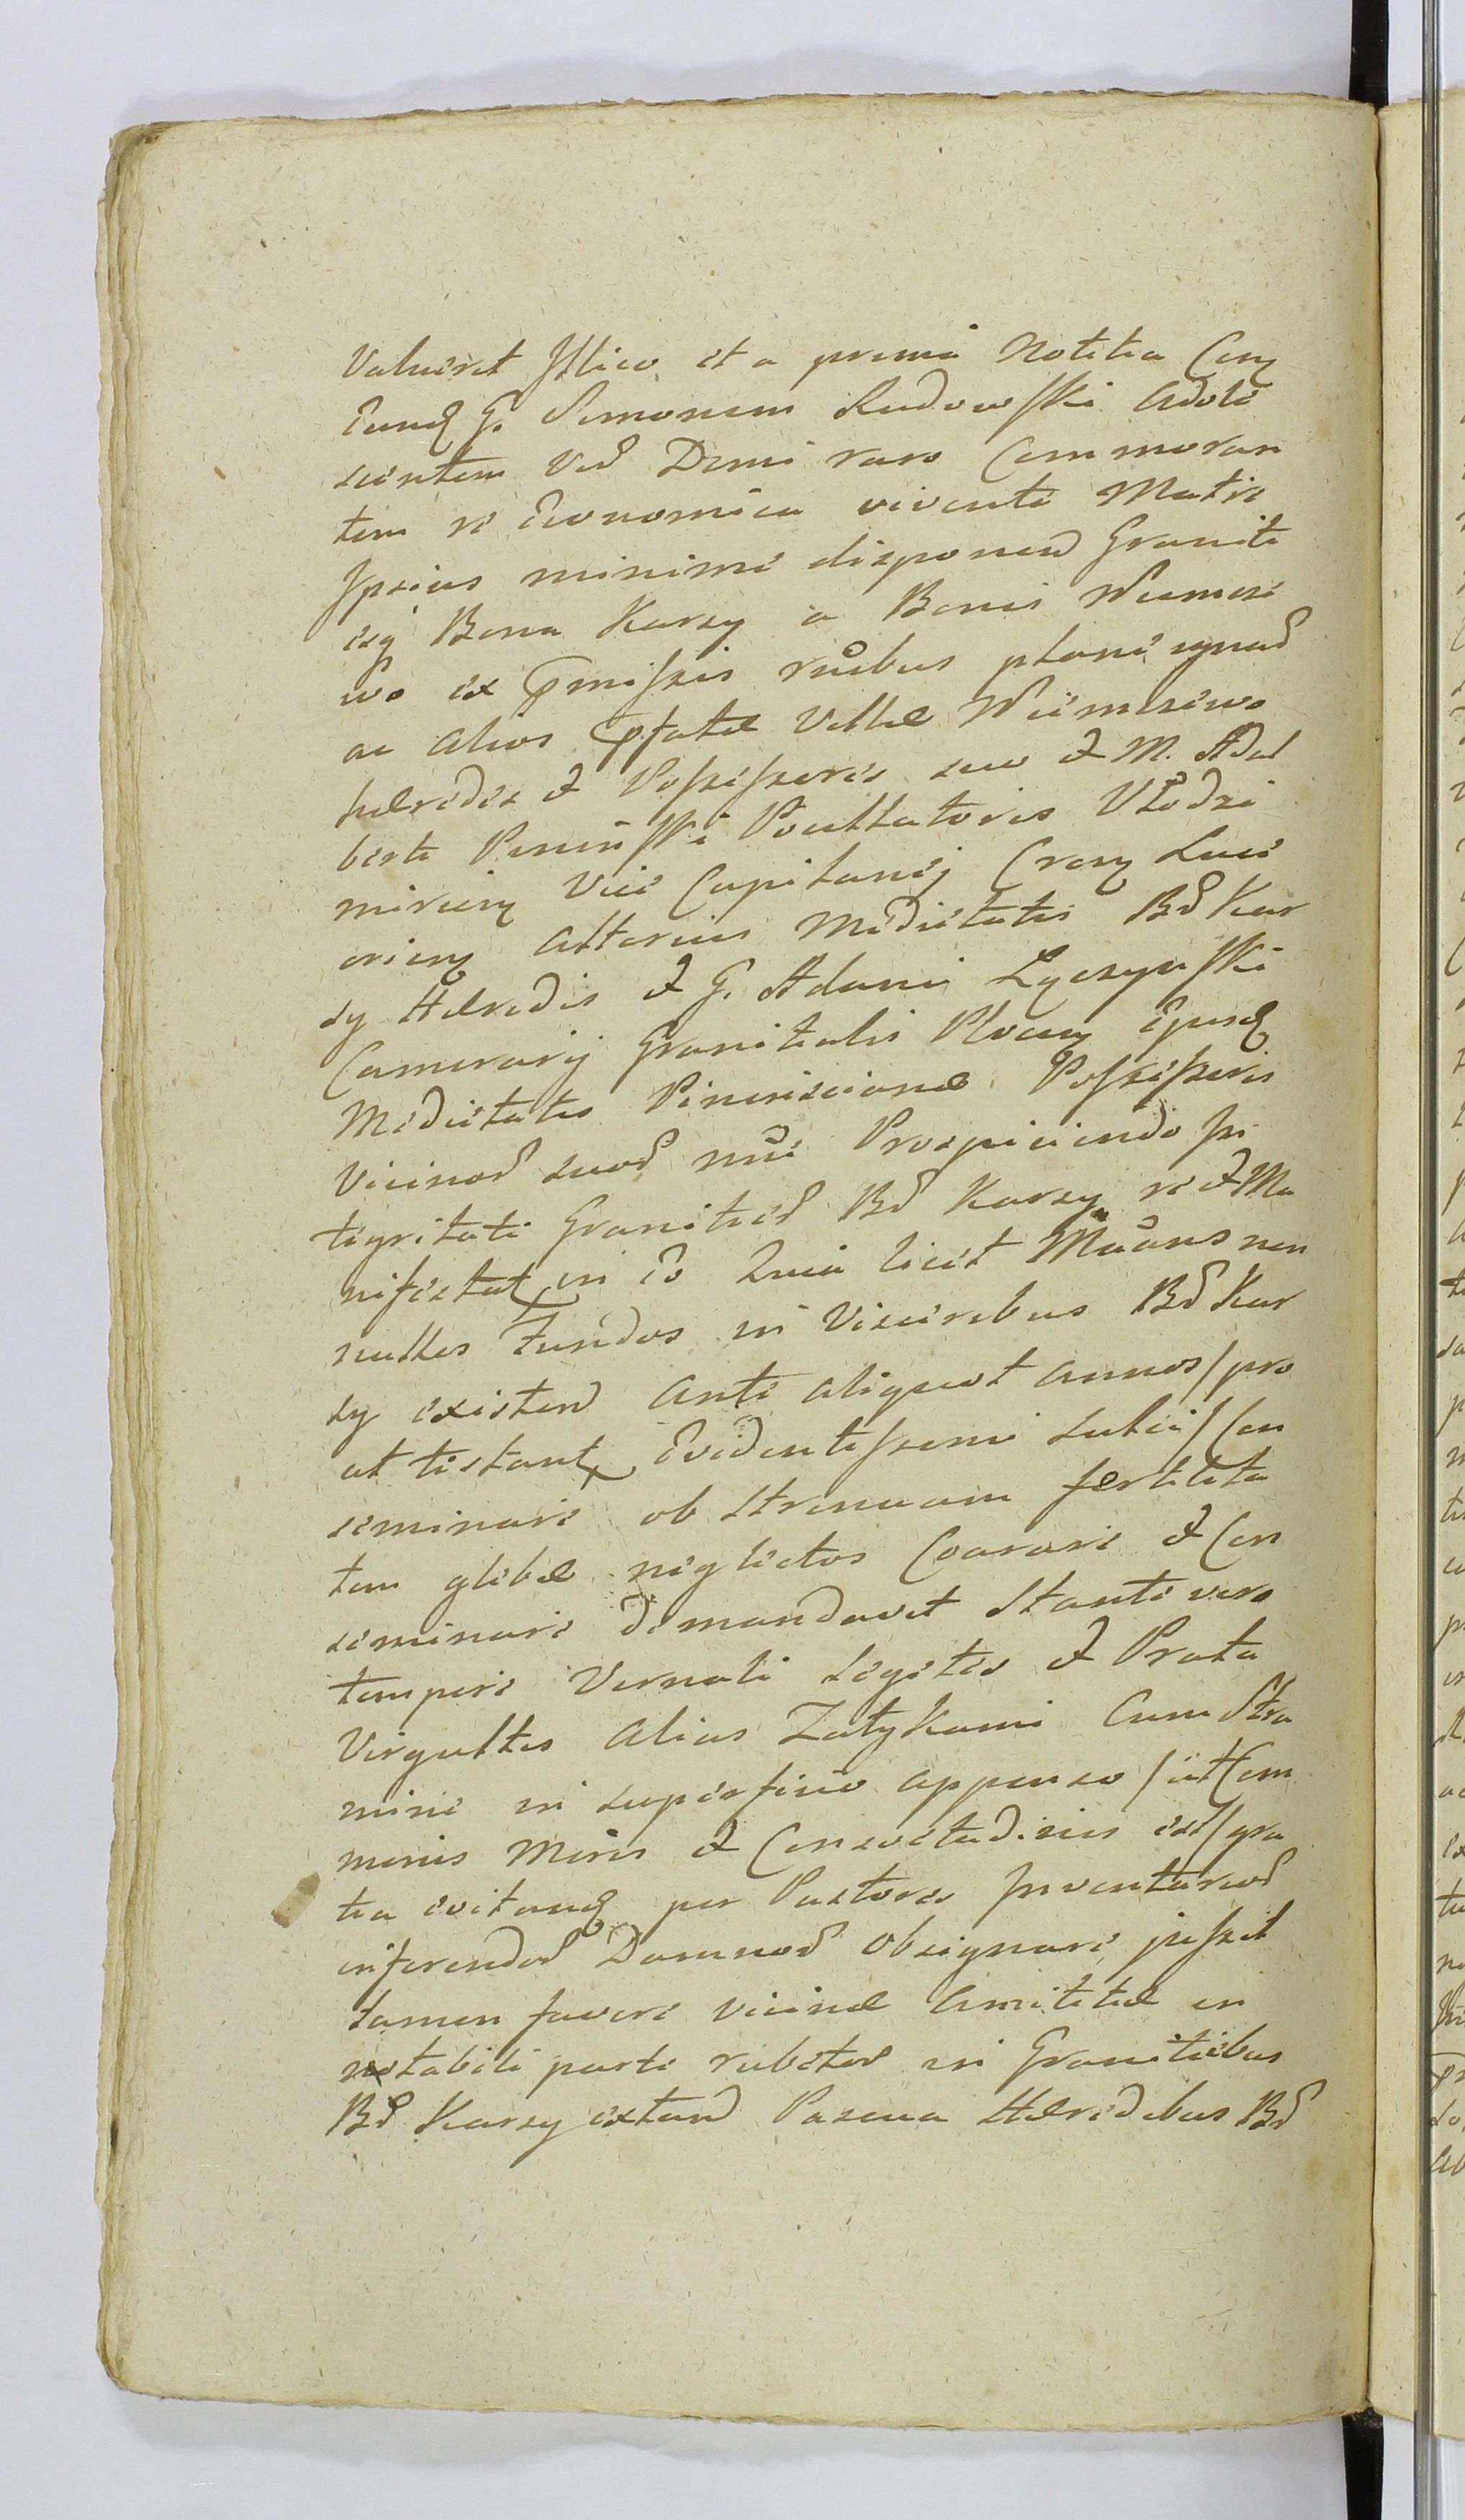 Valuerit Illico et a prima Notitia Cong
Eund G. Simonem Rudowski Adole
scentem Ved Domi raro Commoran
tem re Economica vivente Matre
Ipsius minime disponen Graniti
esq Bona Karsy a Bonis Wiemsze
wo ex Pmissis rnibus plane ignad
ac alios Pfatæ Villæ Wiemszewo
hæredes et Possessores suo et M. Adal
berti Poninski Pocillatoris Vłodzi
mirien Vice Capitanei Cren Luce
orien alterius Medietatis Bd Kar
sy Hæredis et G. Adami Łączynski
Camerarij Granitialis Plocen Ejusd
Medietatis Pinesciones Possessoris
Vicinod suod nnẽ Prospiciendo In
tegritati Granitied Bd Karsy re et Ma
nifestat in Eo Quia licet Mãans non
nullos Fundos in Visceribus Bd Kar
sy existen Ante aliquot annos / pro
ut testant Evidentissime sulci / Con
seminare ob strenuam fertilita
tem glebæ neglectos Coarare et Con
seminare demandavit Stante vero
tempore Vernali segetes et Prata
Virgultis alias Zatykami Cum Stra
mine in superfine appenso / ut Com
munis Moris et Consvetudinis est / gra
tia evitand per Pastores Inventariod
inferendod Damnod Obsignare jussit
tamen favore vicinæ Amicitiæ in
notabili parte rubetod in Granitiebus
Bd Karsy extand Pascua Hæredibus Bd